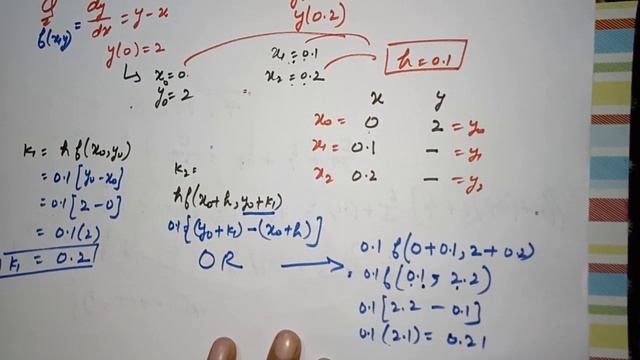 f(x,y) = dy/dx = y - x
y(0.2)
y(0) = 2
↳ x₀ = 0.
y₀ = 2
x₁ = 0.1
x₂ = 0.2
h = 0.1
x y
x₀ = 0 2 = y₀
x₁ = 0.1 - = y₁
x₂ = 0.2 - = y₂
K₁ = h f(x₀, y₀)
= 0.1 [y₀ - x₀]
= 0.1 [2 - 0]
= 0.1 (2)
K₁ = 0.2
K₂ =
h f(x₀ + h, y₀ + K₁)
0.1 [(y₀ + K₁) - (x₀ + h)]
OR →
0.1 f(0 + 0.1, 2 + 0.2)
= 0.1 f(0.1, 2.2)
0.1 [2.2 - 0.1]
0.1 (2.1) = 0.21